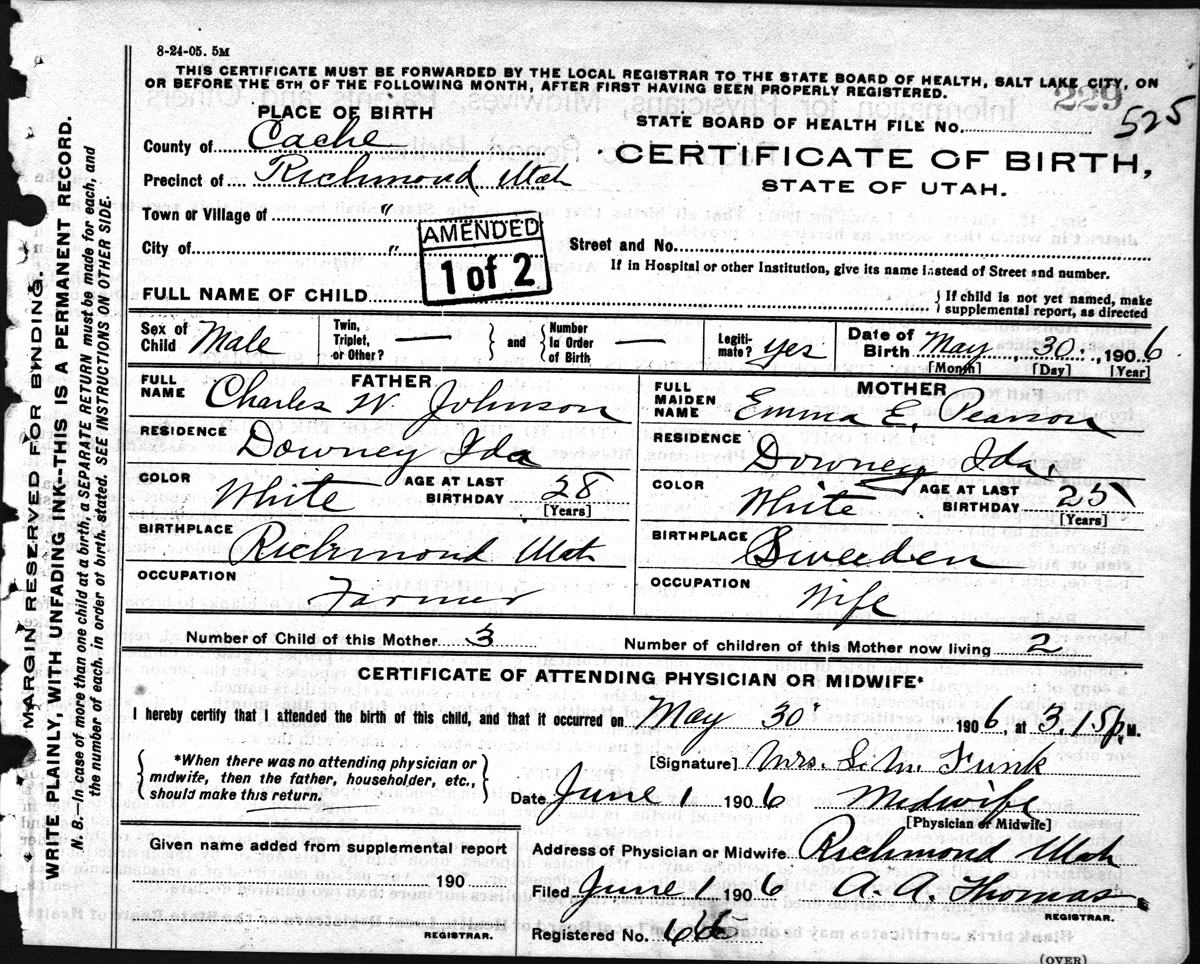 8-24-05. 5M
THIS CERTIFICATE MUST BE FORWARDED BY THE LOCAL REGISTRAR TO THE STATE BOARD OF HEALTH, SALT LAKE CITY, ON
OR BEFORE THE 5TH OF THE FOLLOWING MONTH, AFTER FIRST HAVING BEEN PROPERLY REGISTERED.
229
525
PLACE OF BIRTH
STATE BOARD OF HEALTH FILE No.
County of Cache
CERTIFICATE OF BIRTH,
Precinct of Richmond Utah
STATE OF UTAH.
Town or Village of "
City of "
AMENDED
1 of 2
Street and No.
If in Hospital or other Institution, give its name instead of Street and number.
FULL NAME OF CHILD
{ If child is not yet named, make
supplemental report, as directed
Sex of Child Male
Twin, Triplet, or Other? —
} and {
Number In Order of Birth —
Legiti-mate? yes
Date of Birth May 30, 1906
[Month] [Day] [Year]
FATHER
FULL NAME Charles W. Johnson
MOTHER
FULL MAIDEN NAME Emma E. Pearson
RESIDENCE Downey Ida
RESIDENCE Downey Ida.
COLOR White
AGE AT LAST BIRTHDAY 28 [Years]
COLOR White
AGE AT LAST BIRTHDAY 25 [Years]
BIRTHPLACE Richmond Utah
BIRTHPLACE Sweeden
OCCUPATION Farmer
OCCUPATION Wife
Number of Child of this Mother 3
Number of children of this Mother now living 2
CERTIFICATE OF ATTENDING PHYSICIAN OR MIDWIFE*
I hereby certify that I attended the birth of this child, and that it occurred on May 30 1906, at 3.15 p. M.
{ *When there was no attending physician or
midwife, then the father, householder, etc.,
should make this return. }
[Signature] Mrs. S. M. Funk
Date June 1 1906 Midwife
[Physician or Midwife]
Given name added from supplemental report
190
REGISTRAR.
Address of Physician or Midwife Richmond Utah
Filed June 1 1906 A. A. Thomas
REGISTRAR.
Registered No.
(OVER)
MARGIN RESERVED FOR BINDING.
WRITE PLAINLY, WITH UNFADING INK--THIS IS A PERMANENT RECORD.
N. B.—In case of more than one child at a birth, a SEPARATE RETURN must be made for each, and
the number of each, in order of birth, stated. SEE INSTRUCTIONS ON OTHER SIDE.